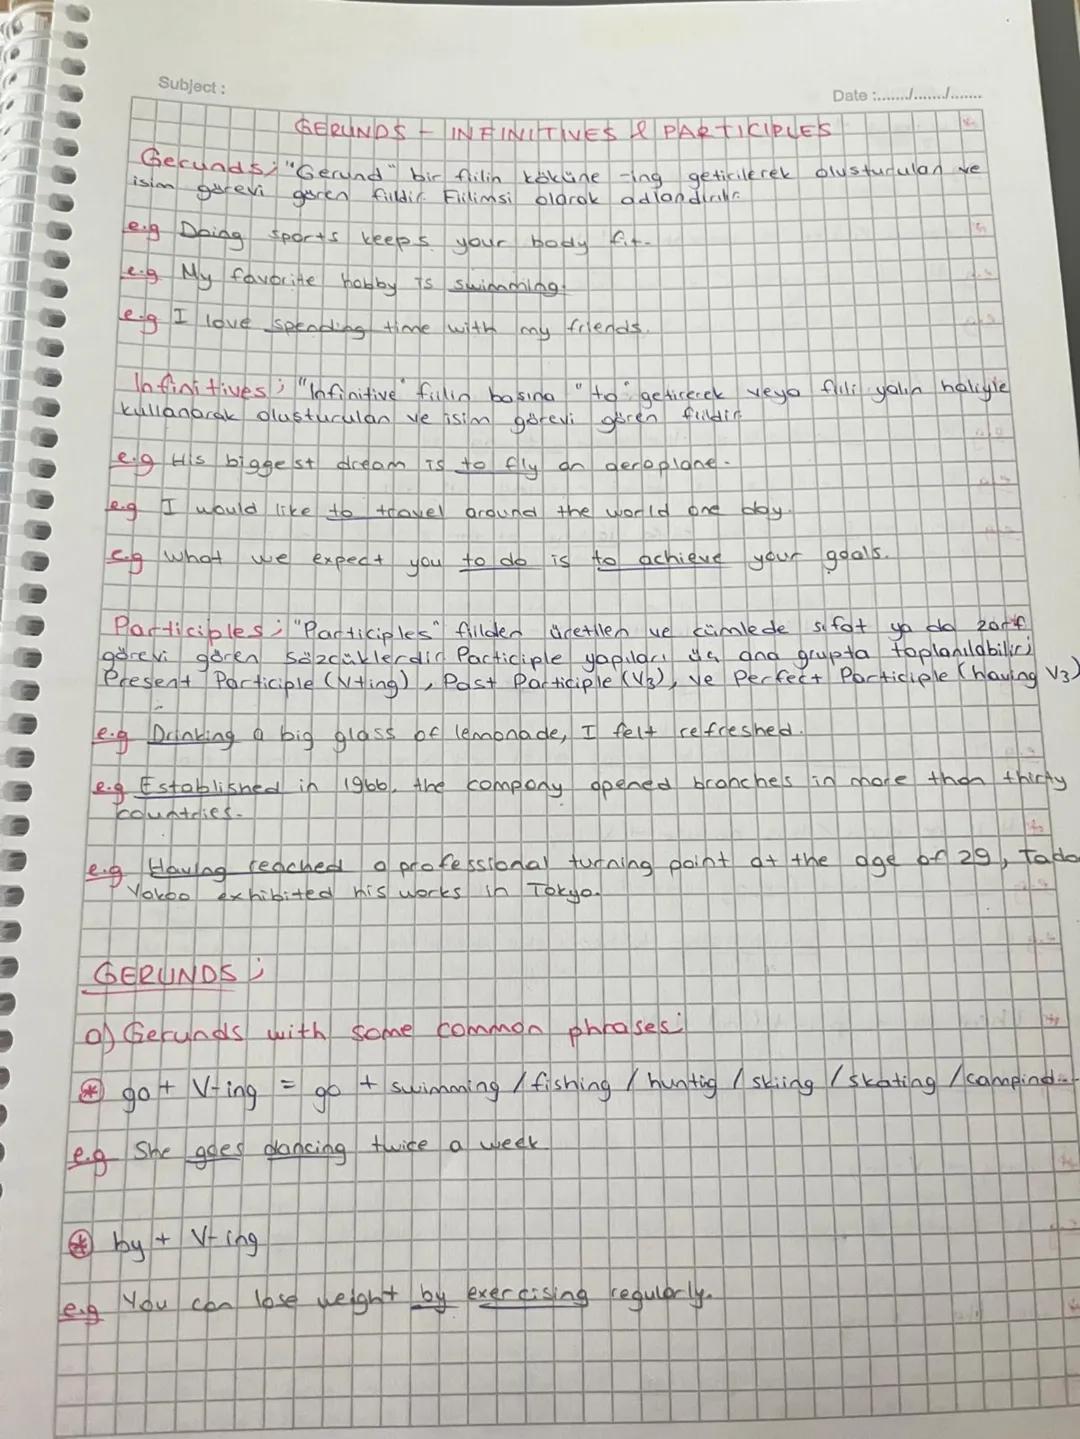 Subject :
Date :......./......./.......
GERUNDS - INFINITIVES & PARTICIPLES
Gerunds; "Gerund" bir fiilin köküne -ing getirilerek oluşturulan ve
isim görevi gören fiildir. Fiilimsi olarak adlandırılır.
e.g Doing sports keeps your body fit.
e.g My favorite hobby is swimming.
e.g I love spending time with my friends.
Infinitives; "Infinitive" fiilin başına "to" getirerek veya fiili yalın haliyle
kullanarak oluşturulan ve isim görevi gören fiildir.
e.g His biggest dream is to fly an aeroplane.
e.g I would like to travel around the world one day.
e.g What we expect you to do is to achieve your goals.
Participles; "Participles" fiilden üretilen ve cümlede sıfat ya da zarf
görevi gören sözcüklerdir. Participle yapıları üç ana grupta toplanılabilir;
Present Participle (V+ing), Past Participle (V3), ve Perfect Participle (having V3)
e.g Drinking a big glass of lemonade, I felt refreshed.
e.g Established in 1966, the company opened branches in more than thirty
countries.
e.g Having reached a professional turning point at the age of 29, Tado
Yokoo exhibited his works in Tokyo.
GERUNDS;
a) Gerunds with some common phrases:
* go + V-ing = go + swimming / fishing / huntig / skiing / skating / campind..
e.g She goes dancing twice a week
* by + V-ing
e.g You can lose weight by exercising regularly.